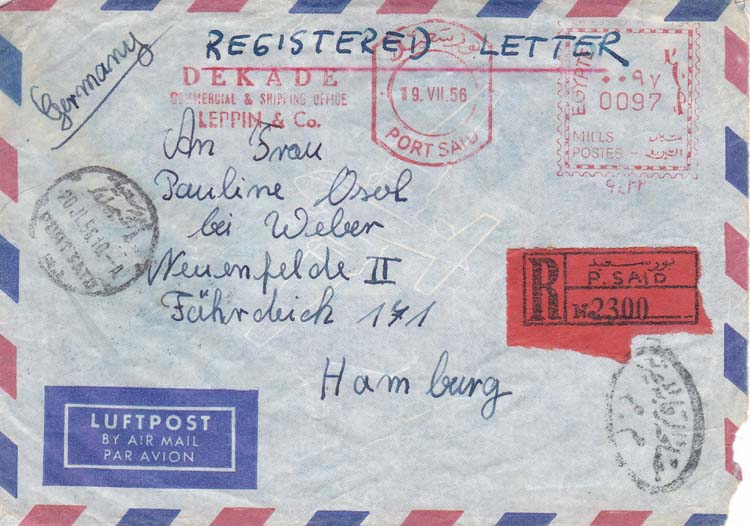 REGISTERED LETTER
Germany
DEKADE
COMMERCIAL & SHIPPING OFFICE
LEPPIN & Co.
بورسعيد
19.VII.56
PORT SAID
EGYPTE
٠٠٩٧
0097
MILLS
POSTES
An Frau
Pauline Osol
bei Weber
Neuenfelde II
Fährdeich 171
Hamburg
20 JL 56.10-A
R
بورسعيد
P. SAID
No 2300
LUFTPOST
BY AIR MAIL
PAR AVION